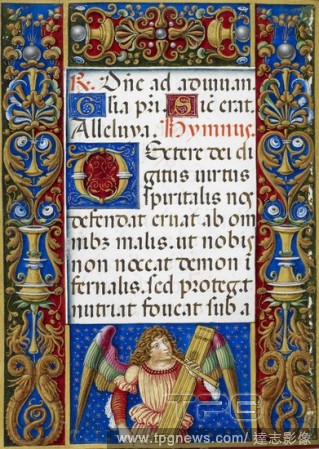 R. Dñe ad adiuuan.
Glia pri. Sic erat.
Alleluya. Hymnus.
Dextere dei di
gitus uirtus
spiritalis nos
defendat eruat ab om
nibz malis. ut nobis
non noceat demon i
fernalis. sed protegat
nutriat foueat sub a
TPG
www.tpgnews.com/ 達志影像